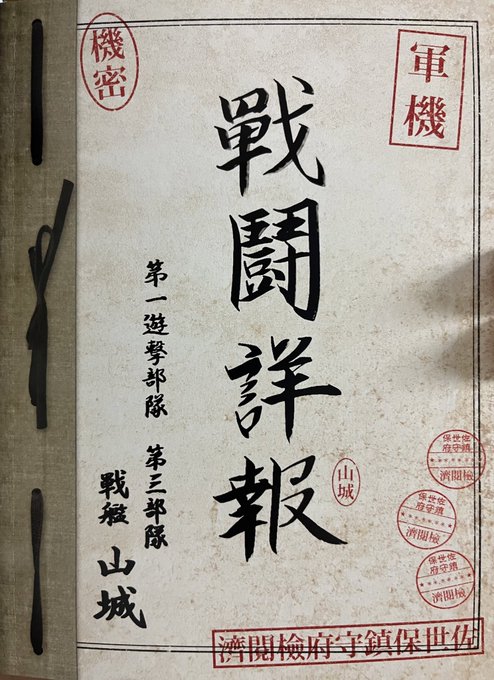 軍機
機密
戰鬪詳報
山城
第一遊撃部隊 第三部隊
戦艦 山城
佐世保
鎮守府
檢閲濟
佐世保
鎮守府
檢閲濟
佐世保
鎮守府
檢閲濟
佐世保鎮守府檢閲濟